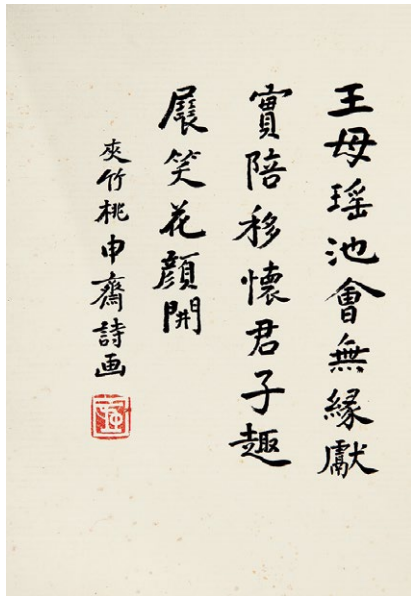 王母瑶池會無緣獻
實陪移懷君子趣
展笑花顔開
夾竹桃申齋詩画